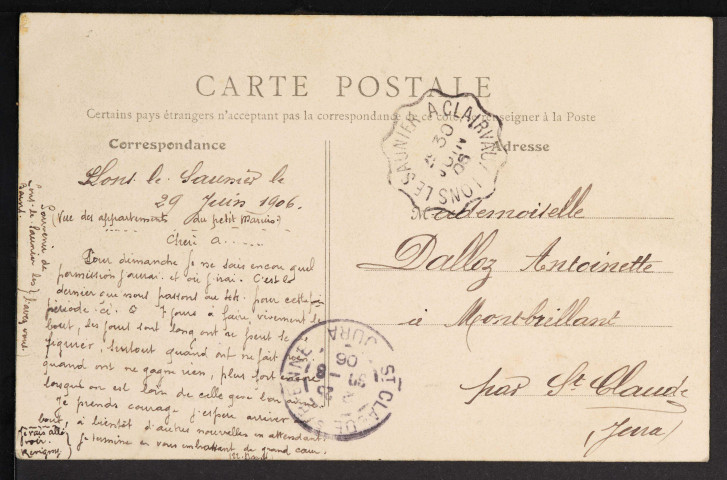 CARTE POSTALE
Certains pays étrangers n'acceptant pas la correspondance de ce côté, se renseigner à la Poste
Correspondance
Lons le Saunier le
29 Juin 1906.
(Vue des appartements du petit Marius?)
Cheri A......
Pour dimanche je ne sais encore quel
permission j'aurai et où j'irai. C'est le
dernier que nous passons au 44e pour cette
période-ci. 7 jours à faire vivement le
bout, les jours sont long ont se peut le
figurer, surtout quand ont ne fait
quand ont ne gagn rien, plus fort encore
lorsqu'on est loin de celle que l'on aime.
Je prends courage j'espère arriver
bout, à bientôt d'autres nouvelles en attendant
je termine en vous embrassant de grand cœur.
Souvenir de
Lons-le-Saunier les
Bains
j'irai allé
voir
Revigny
Adresse
Mademoiselle
Dalloz Antoinette
à Montbrillant
par St Claude
(Jura)
LONS LE SAUNIER A CLAIRVAUX
30
JUIN
06
ST CLAUDE
JURA
06